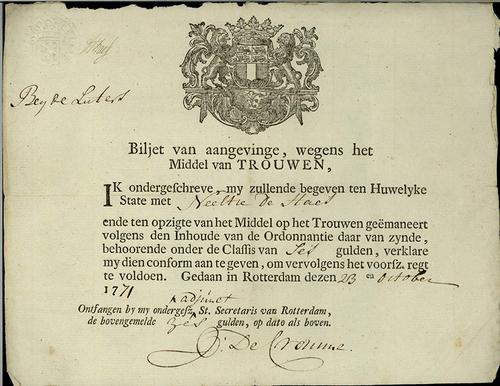 Bey de Luters
Biljet van aangevinge, wegens het
Middel van TROUWEN,
IK ondergeschreve, my zullende begeven ten Huwelyke
State met Neeltie de Haes
ende ten opzigte van het Middel op het Trouwen geëmaneert
volgens den Inhoude van de Ordonnantie daar van zynde,
behoorende onder de Classis van Ses gulden, verklare
my dien conform aan te geven, om vervolgens het voorsz. regt
te voldoen. Gedaan in Rotterdam dezen 23 en October
1771
adjunct
Ontfangen by my ondergesz. St. Secretaris van Rotterdam,
de bovengemelde zes gulden, op dato als boven.
De Cromme.